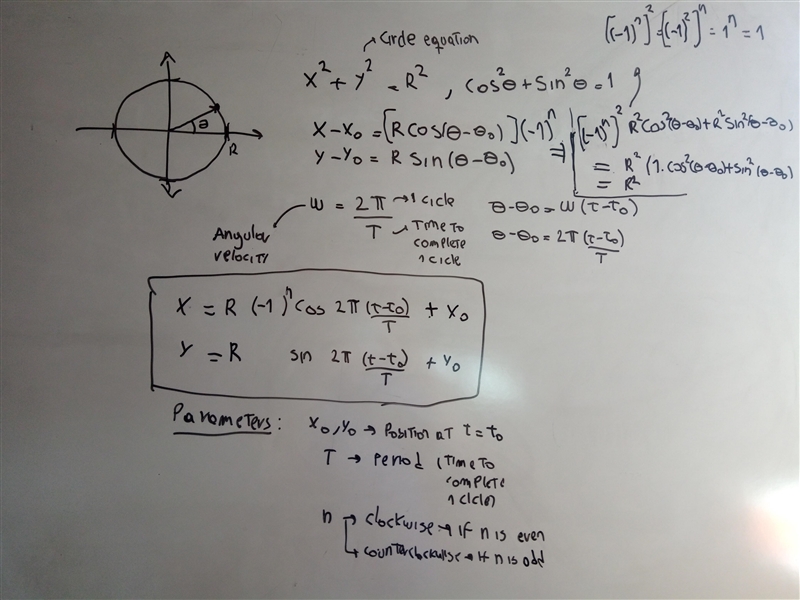 [(-1)^n]^2 = [(-1)^2]^n = 1^n = 1
Circle equation
X^2 + Y^2 = R^2 , Cos^2θ + Sin^2θ = 1
θ
R
X - X0 = [R Cos(θ-θ0)](-1)^n
Y - Y0 = R Sin(θ-θ0)
⇒ [(-1)^n]^2 R^2Cos^2(θ-θ0) + R^2Sin^2(θ-θ0)
= R^2 (1.Cos^2(θ-θ0)+Sin^2(θ-θ0)
= R^2
Angular velocity
ω = 2π/T
→ 1 cicle
→ Time to
complete
1 cicle
θ-θ0 = ω(t-t0)
θ-θ0 = 2π(t-t0)/T
X = R (-1)^n cos 2π (t-t0)/T + X0
Y = R sin 2π (t-t0)/T + Y0
Parameters:
X0, Y0 → Position at t = t0
T → period (Time to
complete
1 cicle)
n → clockwise → if n is even
→ counterclockwise → if n is odd